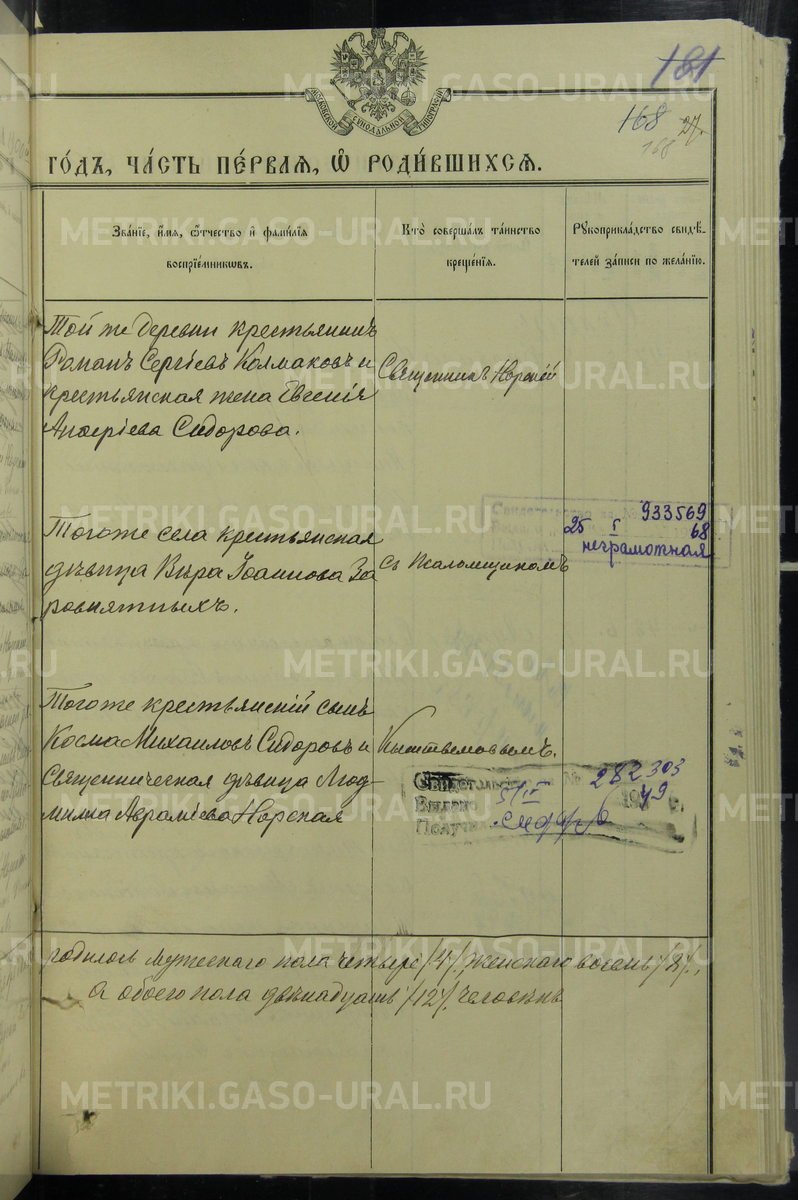 181
168 27.
168
МОСКОВСКОЙ СѴНОДАЛЬНОЙ ТИПОГРАФІИ
ГО́ДЪ, ЧА́СТЬ ПЕ́РВАѦ, Ѡ҆ РОДИ́ВШИХСѦ.
Зва́нїе, и҆́мѧ, ѻ҆́тчество и҆ фами́лїѧ
воспрїе́мникѡвъ.
Кто̀ соверша́лъ та́инство
креще́нїѧ.
Рꙋкоприкла́дство свидѣ́-
телей за́писи по жела́нїю.
Той же деревни крестьянинъ
Романъ Сергіевъ Колмаковъ и
крестьянская жена Евгенія
Андреева Сидорова.
Священникъ Норскій
Тогоже села крестьянская
дѣвица Вѣра Іоаннова За
ровнятныхъ.
съ Псаломщикомъ
933569
25 I 68
неграмотная
Тогоже крестьянскій сынъ
Косма Михаиловъ Сидоровъ и
Священническая дѣвица Люд-
милла Авраміева Норская
Свидетельство № 282303
Выдано 1949 г.
Получил
родилось мужескаго пола четыре /4/, женскаго восемь /8/,
а обоего пола двѣнадцать /12/ человѣкъ
METRIKI.GASO-URAL.RU